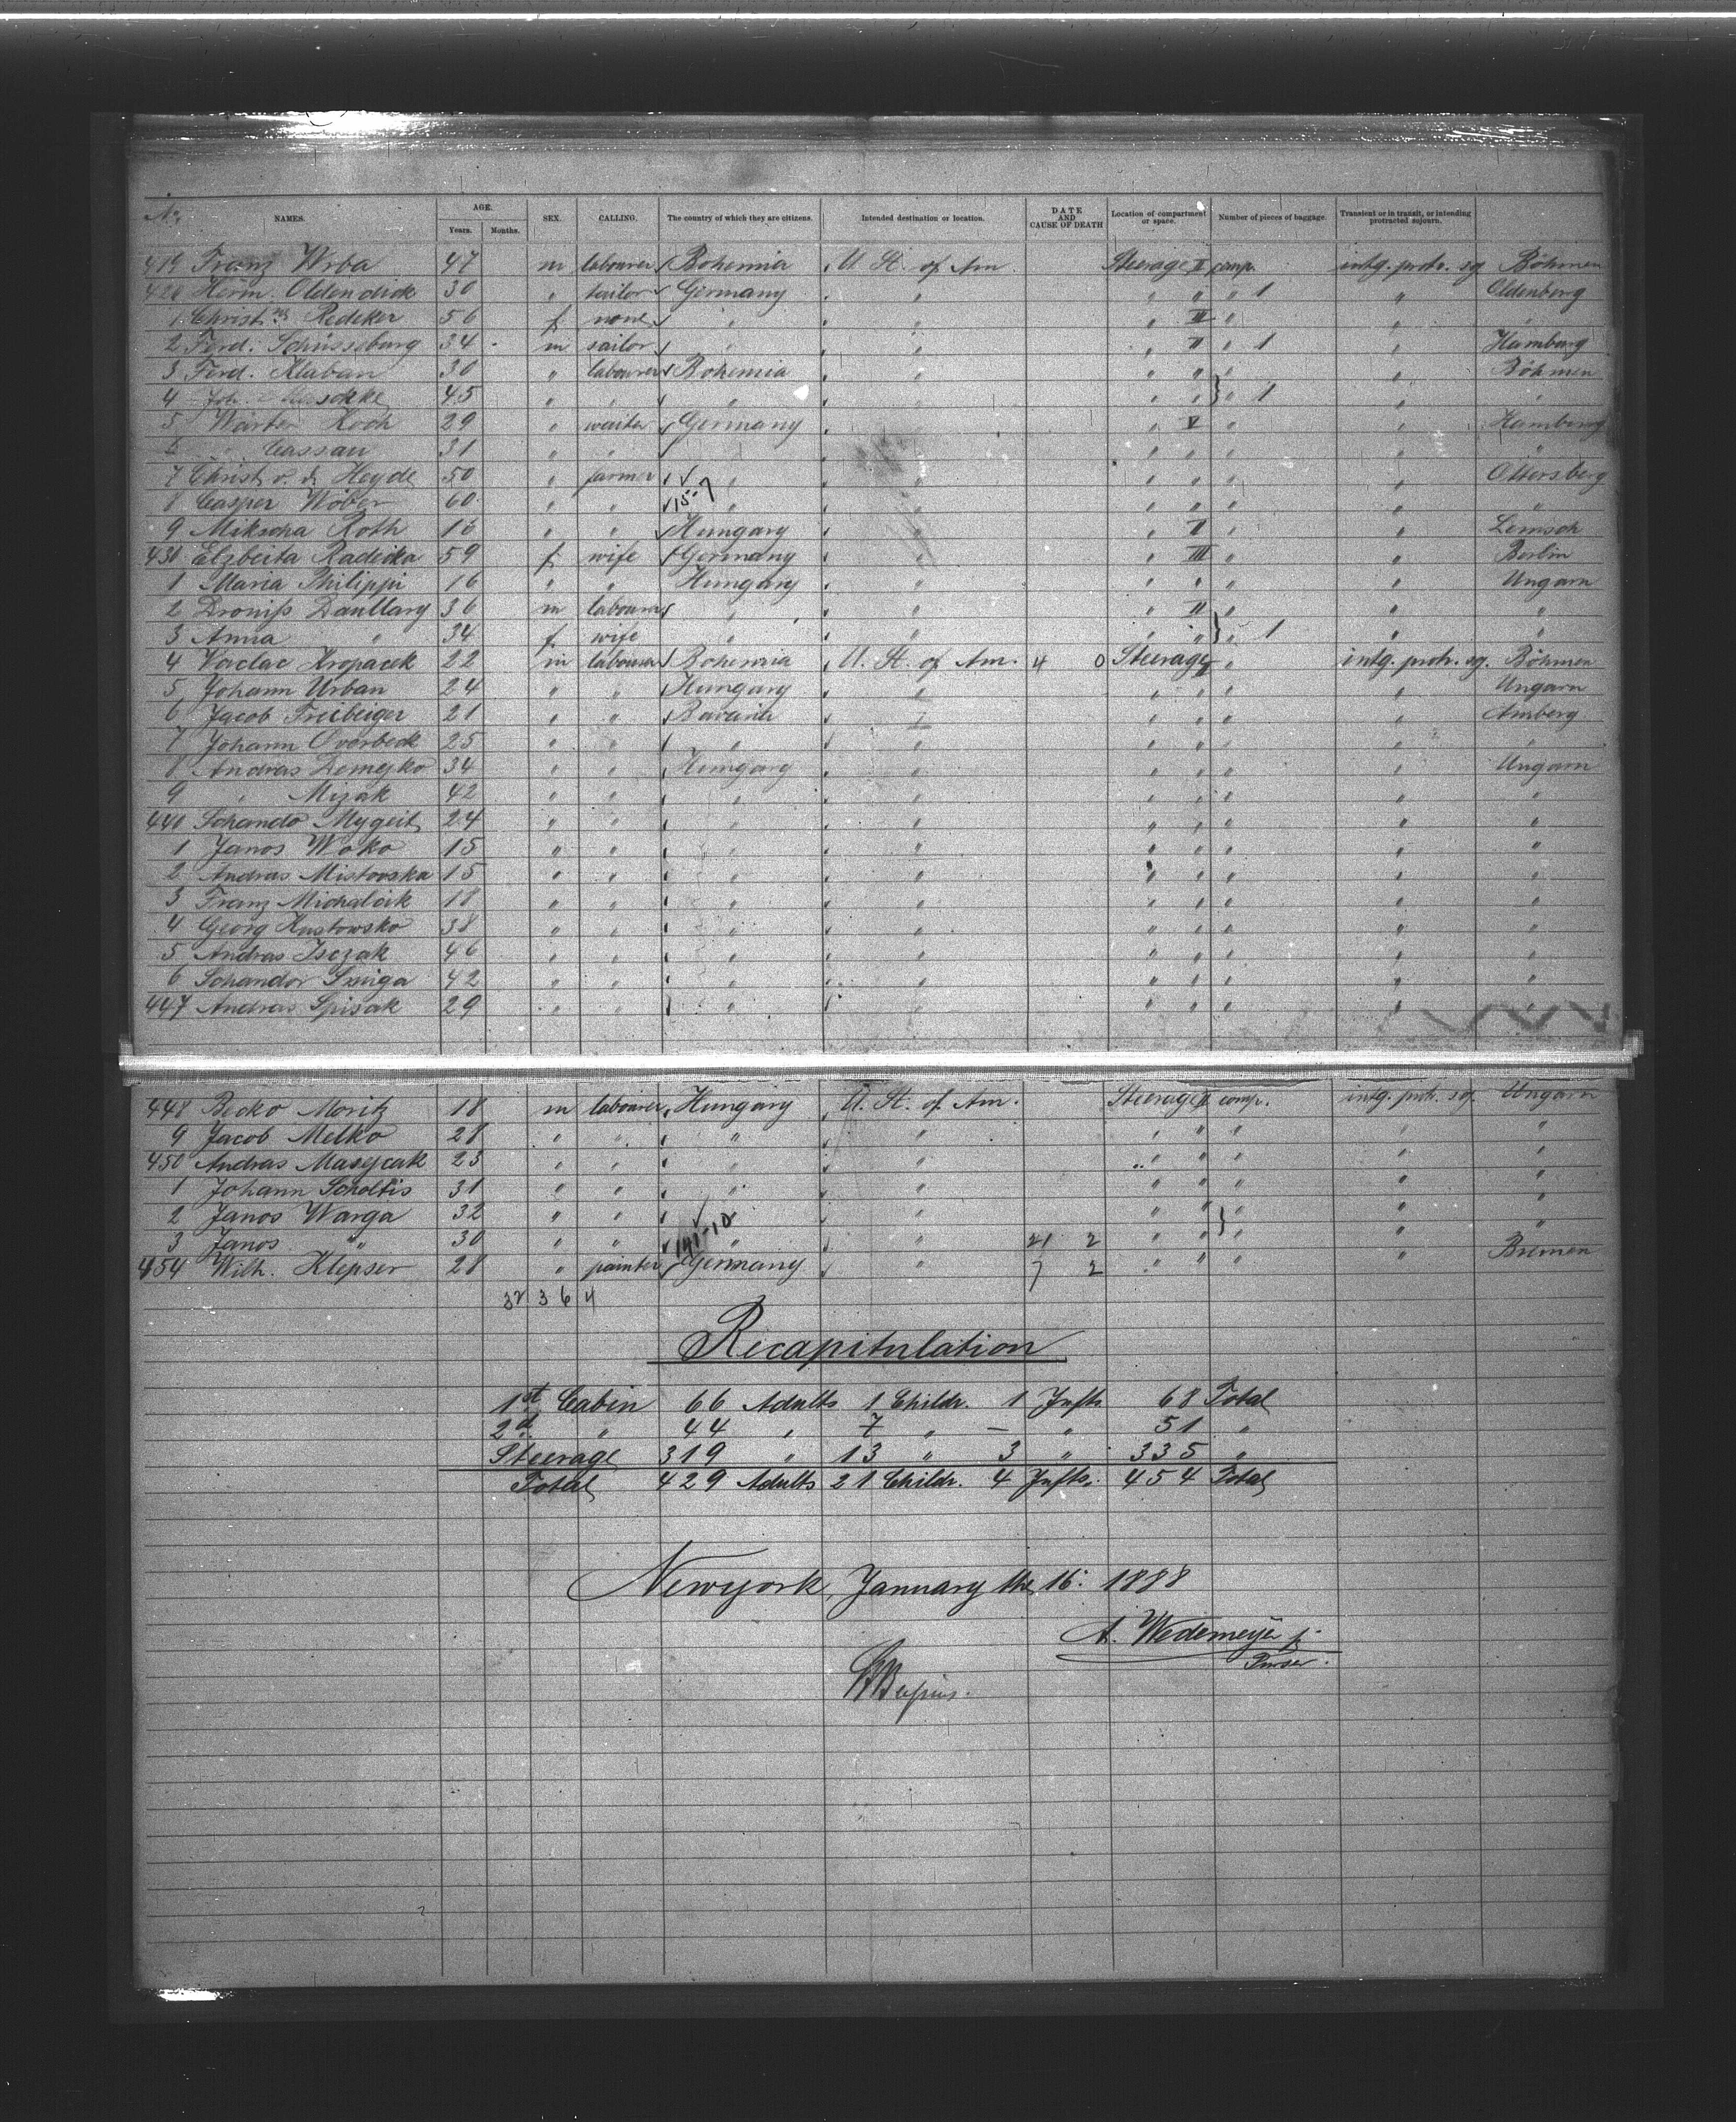 No. NAMES. AGE. Years. Months. SEX. CALLING. The country of which they are citizens. Intended destination or location. DATE AND CAUSE OF DEATH Location of compartment or space. Number of pieces of baggage. Transient or in transit, or intending protracted sojourn.
419 Franz Wrba 47 m labourer Bohemia U. St. of Am. Steerage II comp. intg. protr. sg. Böhmen
420 Herm. Oldendick 30 " tailor Germany " " " " 1 " Oldenberg
1 Christne Redeker 56 f none " " " III " " "
2 Ferd. Schüssburg 34 m sailor " " " II " 1 " Hamburg
3 Ferd. Klaban 30 " labourer Bohemia " " " " " Böhmen
4 Joh. 45 " " " " " " " 1 " "
5 Walter Koch 29 " waiter Germany " " V " " Hamburg
6 " Cassau 31 " " " " " " " " "
7 Christ. v. d. Heyde 50 " farmer " " " " " " Ottersberg
8 Casper Wöber 60 " " 15-7 " " " " " " "
9 Mikscha Roth 16 " " Hungary " " II " " Lemsch
430 Elzbeita Radecka 59 f wife Germany " " III " " Berlin
1 Maria Philippi 16 " " Hungary " " " " " Ungarn
2 Dronifs Danllary 36 m labourer " " " II " " "
3 Anna " 34 f wife " " " " " 1 " "
4 Vaclac Kropacek 22 m labourer Bohemia U. St. of Am. 4 0 Steerage II " intg. protr. sg. Böhmen
5 Johann Urban 24 " " Hungary " " " " " Ungarn
6 Jacob Freibeiger 21 " " Bavaria " " " " " Amberg
7 Johann Overbeck 25 " " " " " " " " "
8 Andras Demyko 34 " " Hungary " " " " " Ungarn
9 " Mizak 42 " " " " " " " " "
440 Schando Mygeit 24 " " " " " " " " "
1 Janos Woko 15 " " " " " " " " "
2 Andras Mistovska 15 " " " " " " " " "
3 Franz Michalcik 18 " " " " " " " " "
4 Georg Kustowsko 38 " " " " " " " " "
5 Andras Isczak 46 " " " " " " " " "
6 Schandor Smiga 42 " " " " " " " " "
447 Andras Spisak 29 " " " " " " " " "
448 Becko Moritz 18 m labourer Hungary U. St. of Am. Steerage II comp. intg. protr. sg. Ungarn
9 Jacob Melko 28 " " " " " " " " "
450 Andras Maseycak 23 " " " " " " " " "
1 Johann Scholtis 31 " " " " " " " " "
2 Janos Warga 32 " " " " " " " " "
3 Janos " 30 " " " " 21 2 " " " " "
454 Wilh. Klepser 28 " painter Germany " 7 2 " " " " Bremen
32 3 6 4
Recapitulation
1st Cabin 66 Adults 1 Childr. 1 Infts 68 Total
2d " 44 " 7 " — " 51 "
Steerage 319 " 13 " 3 " 335 "
Total 429 Adults 21 Childr. 4 Infts. 454 Total
Newyork, January the 16. 1888
A. Wedemeyer jr.
Purser.